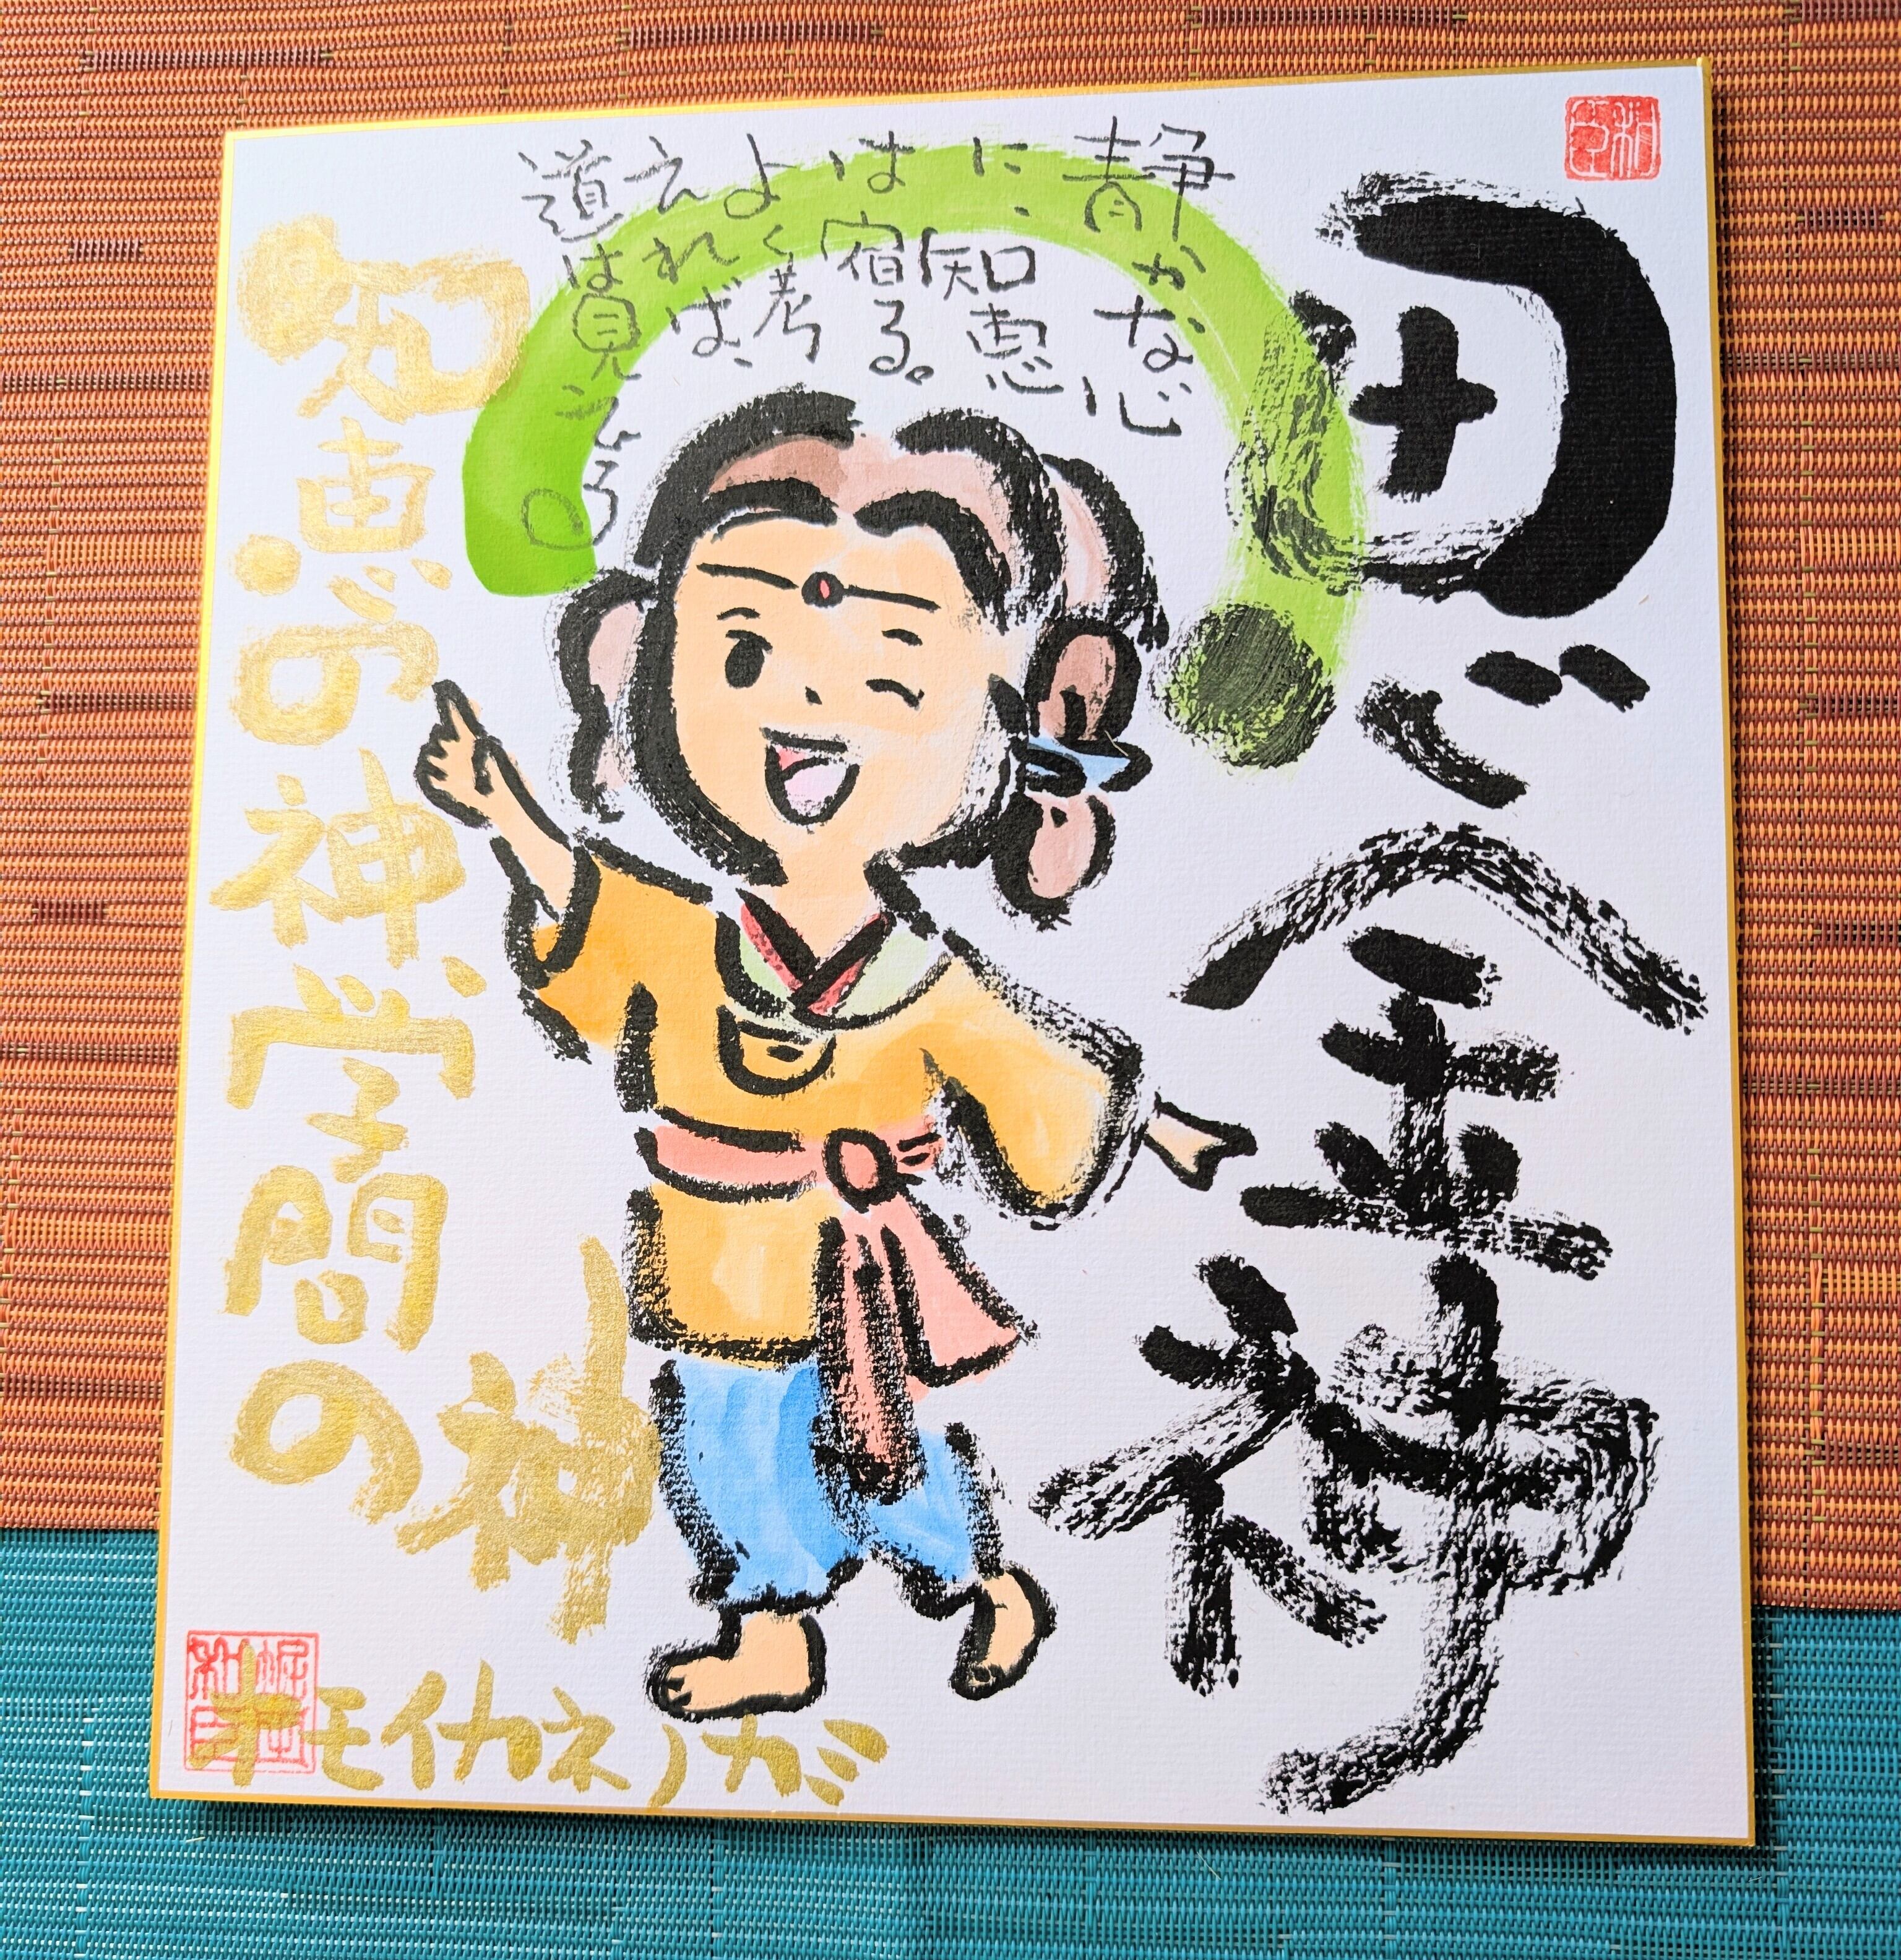 思金神
静かな心
に、知恵
は宿る。
よく考
えれば、
道は見える。
知恵の神学問の
神
オモイカネノカミ